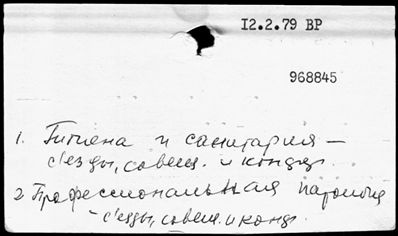 12.2.79 ВР
968845
1. Гигиена и санитария —
съезды, совещ. и конф.
2 Профессиональная патология
- съезды, совещ. и конф.